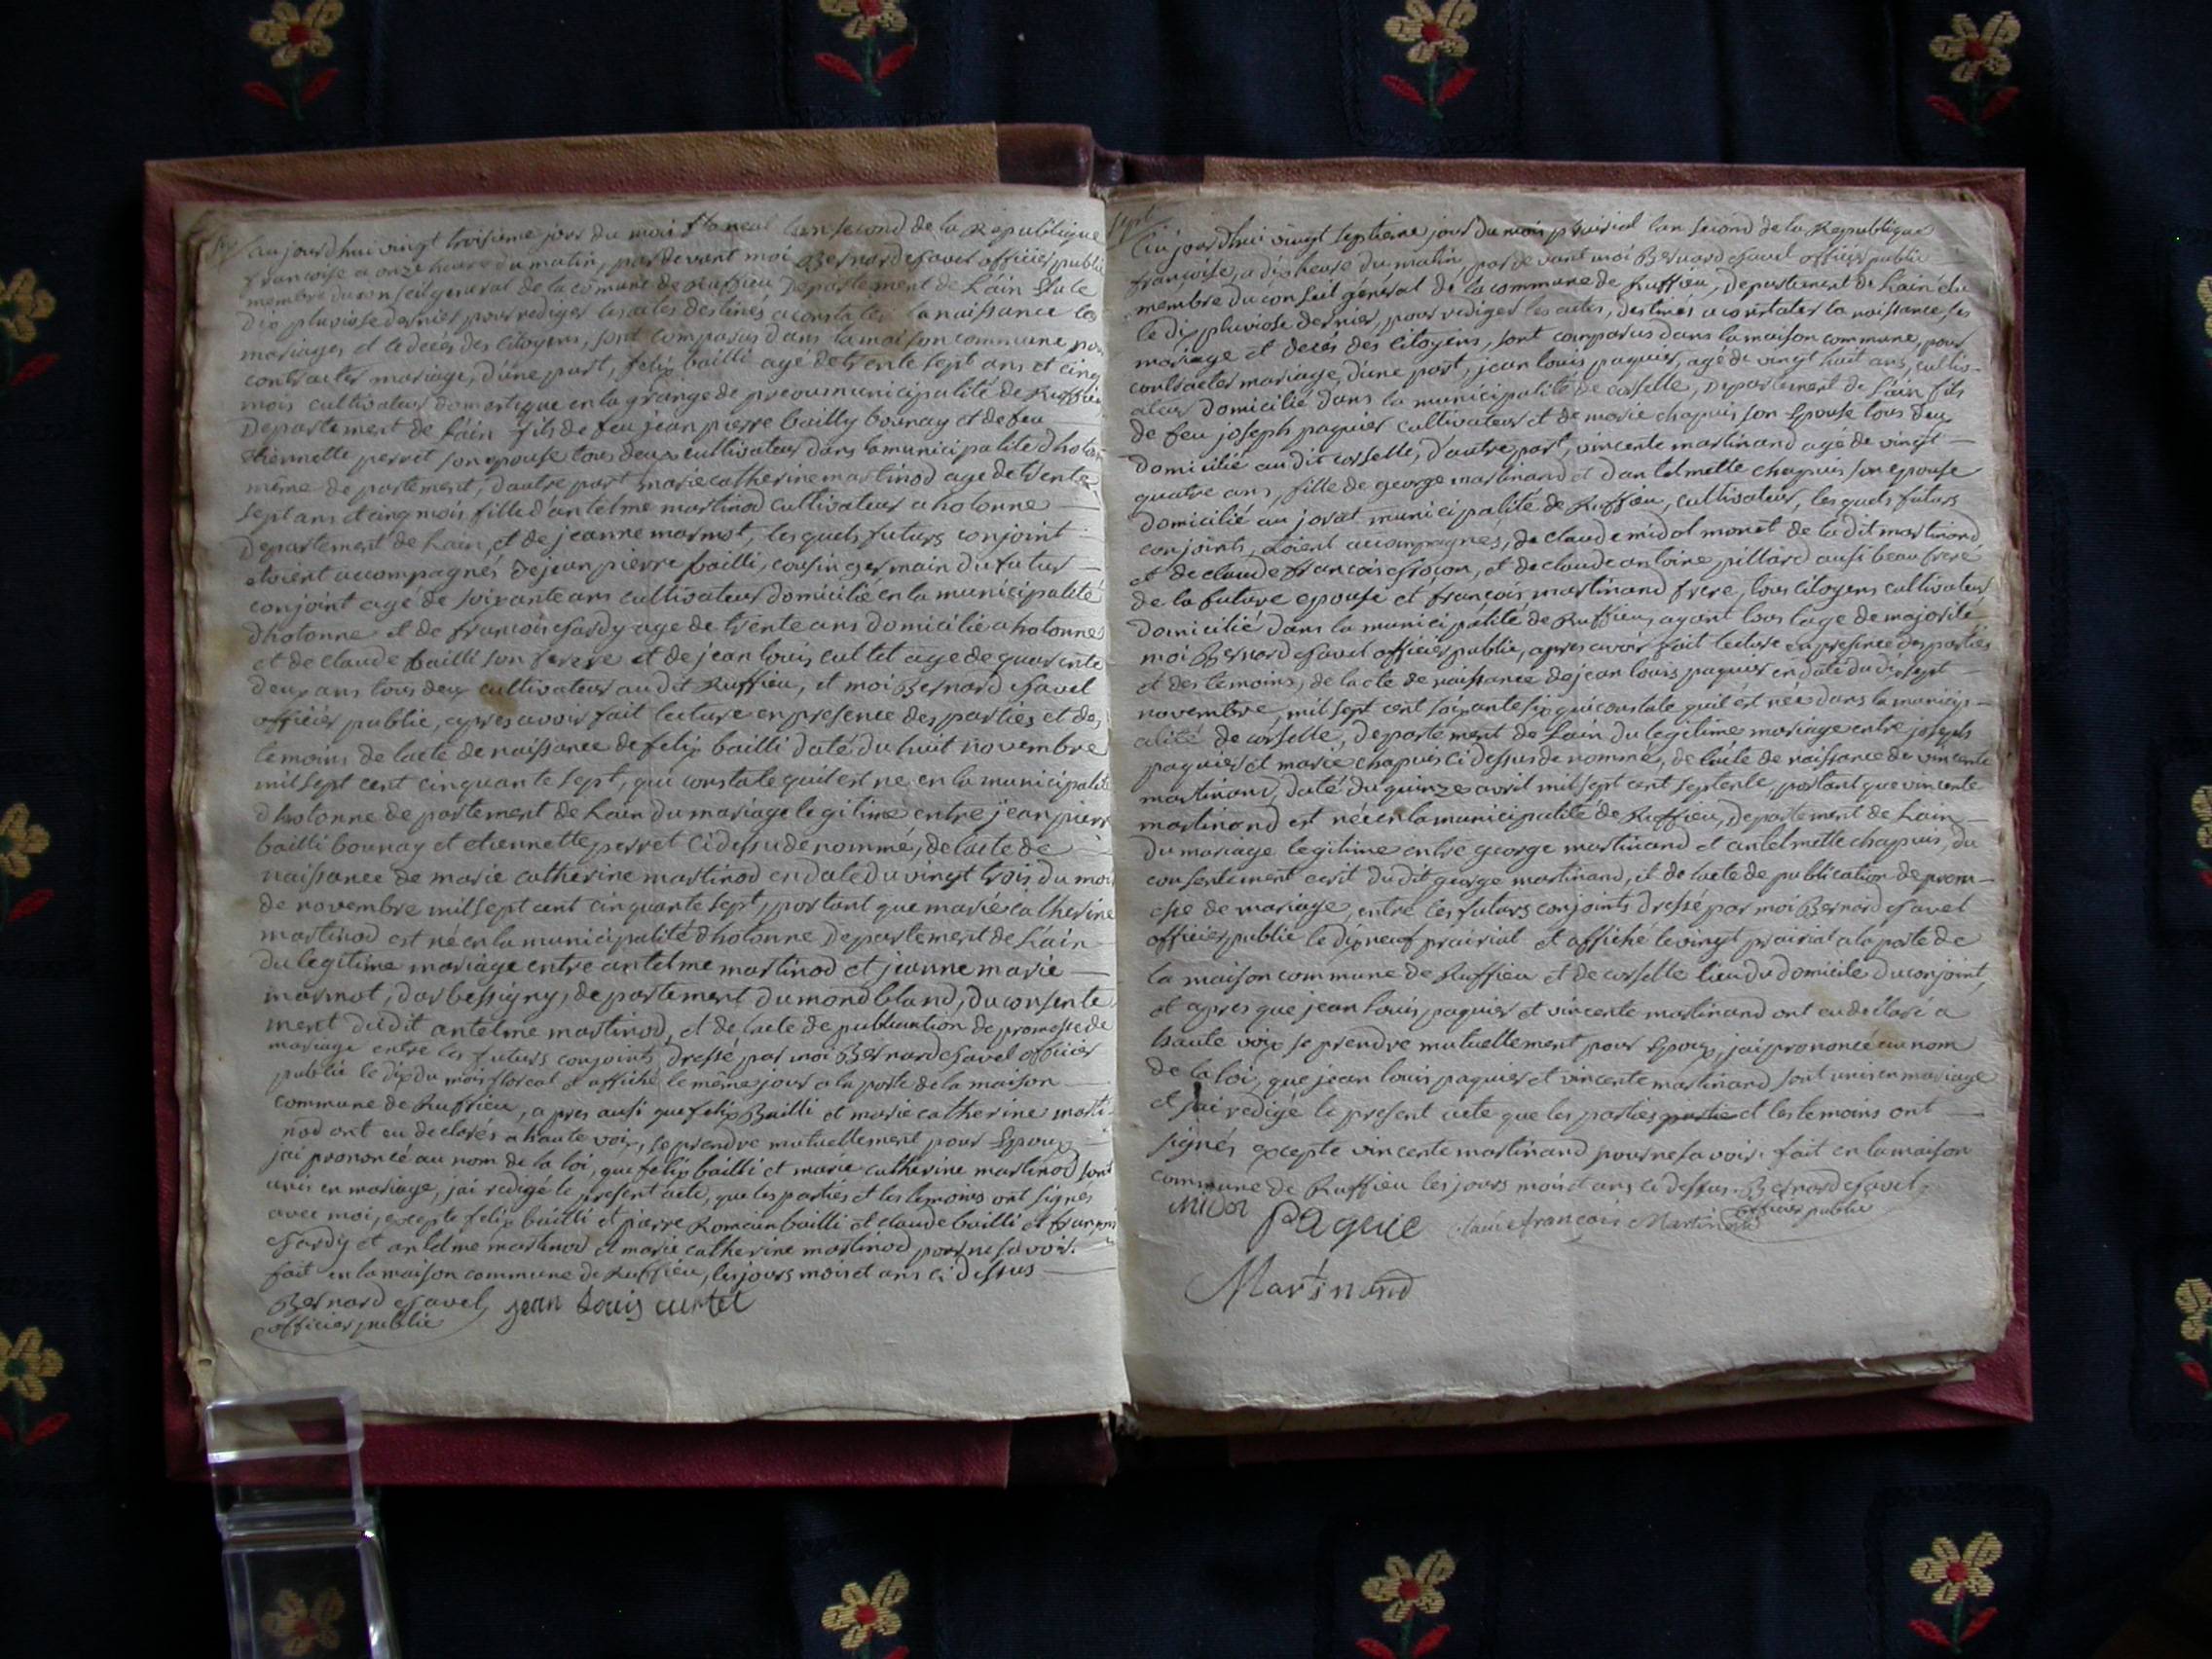 aujourdhui vingt troisieme jour du mois floreal lan second de la Republique
francoise a onze heure du matin, pardevant moi Bernard Savel officier public
membre du conseil general de la comune de Ruffieu Departement de Lain Elu le
Dix pluviose dernier pour rediger les actes destinés a constater la naissance les
mariages et le deces des citoyens, sont comparus dans la maison commune pour
contracter mariage, d'une part, felix bailli agé de trente sept ans et cinq
mois cultivateur domestique en la grange de municipalité de Ruffieu
Departement de Lain fils de feu jean pierre bailly bounay et de feu
etiennette perret son epouse tous deux cultivateur dans la municipalité dhotonne
même departement, dautre part marie catherine martinod agé de trente
sept ans et cinq mois fille dantelme martinod cultivateur a hotonne
Departement de Lain, et de jeanne marmot, lesquels futurs conjoint
etoient accompagnés de jean pierre bailli, cousin germain du futur
conjoint agé de soixante ans cultivateur domicilié en la municipalité
dhotonne et de francois Sardy age de trente ans domicilié a hotonne
et de claude bailli son frere et de jean louis curtet agé de quarente
deux ans tous deux cultivateur audit Ruffieu, et moi Bernard Savel
officier public, apres avoir fait lecture en presence des parties et des
temoins de lacte de naissance de felix bailli daté du huit novembre
mil sept cent cinquante sept, qui constate quil est ne en la municipalité
dhotonne departement de Lain du mariage legitime entre jean pierre
bailli bounay et etiennette perret ci dessu denommé, de lacte de
naissance de marie catherine martinod en date du vingt trois du mois
de novembre mil sept cent cinquante sept, portant que marie catherine
martinod est né en la municipalité dhotonne Departement de Lain
du legitime mariage entre antelme martinod et jeanne marie
marmot, departement du mond bland, du consente
ment dudit antelme martinod, et de lacte de publication de promesse de
mariage entre les futurs conjoints dressé par moi Bernard Savel officier
public le dix du mois floreal et affiché le même jour a la porte de la maison
commune de Ruffieu, apres ausi que felix Bailli et marie catherine marti-
nod ont eu declarés a haute voix, se prendre mutuellement pour Epoux
jai prononcé au nom de la loi, que felix bailli et marie catherine martinod sont
unis en mariage, jai redigé le present acte, que les parties et les temoins ont signes
avec moi, excepte felix bailli et pierre Romain bailli et claude bailli et francois
Sardy et antelme martinod et marie catherine martinod pour ne savoir.
fait en la maison commune de Ruffieu, les jours mois et ans ci dessus
Bernard Savel jean Louis curtet
officier public
sept
aujourdhui vingt septieme jour du mois prairial lan second de la Republique
françoise, a dix heure du matin, pardevant moi Bernard Savel officier public
membre du conseil général de la commune de Ruffieu, Departement de Lain élu
le dix pluviose dernier, pour rediger les actes, destinés a constater la naissance, les
mariage et decés des citoyens, sont comparus dans la maison commune, pour
contracter mariage, d'une part, jean louis paquier, agé de vingt huit ans, cultiv-
ateur domicilié dans la municipalité de corselle, Departement de Lain fils
de feu joseph paquier cultivateur et de marie chapuis son Epouse tous deux
domicilié audit corselle, d'autre part, vincente martinand agé de vingt
quatre ans, fille de george martinand et dantelmette chapuis son epouse
domicilié au jorat municipalité de Ruffieu, cultivateur, lesquels futurs
conjoints, étoient accompagnés, de claude midol monet de ladit martinand
et de claude francois Socon, et de claude antoine pillard ausi beau frere
de la future epouse et françois martinand frere, tous citoyens cultivateur
domicilié dans la municipalité de Ruffieu, ayant tous lage de majorité
moi Bernard Savel officier public, apres avoir fait lecture en presence des parties
et des temoins, de lacte de naissance de jean louis paquier en date du dix sept
novembre, mil sept cent soixante six qui constate quil est née dans la municip-
alité de corselle, departement de Lain du legitime mariage entre joseph
paquier et marie chapuis ci dessus denommé, de lacte de naissance de vincente
martinand, daté du quinze avril mil sept cent septente, portant que vincente
martinand est née en la municipalité de Ruffieu, departement de Lain
du mariage legitime entre george martinand et antelmette chapuis, du
consentement ecrit dudit george martinand, et de lacte de publication de prom-
esse de mariage, entre les futurs conjoints dressé par moi Bernard Savel
officier public le dix neuf prairial et affiché le vingt prairial a la porte de
la maison commune de Ruffieu et de corselle lieu du domicile du conjoint,
et apres que jean louis paquier et vincente martinand ont eu declaré a
haute voix se prendre mutuellement pour Epoux, jai prononcé au nom
de la loi, que jean louis paquier et vincente martinand sont unis en mariage
et jai redigé le present acte que les parties partie et les temoins ont
signés excepte vincente martinand pour ne savoir. fait en la maison
commune de Ruffieu les jours mois et ans ci dessus. Bernard Savel
midol Paquie claude françois Martinand officier public
Martinand